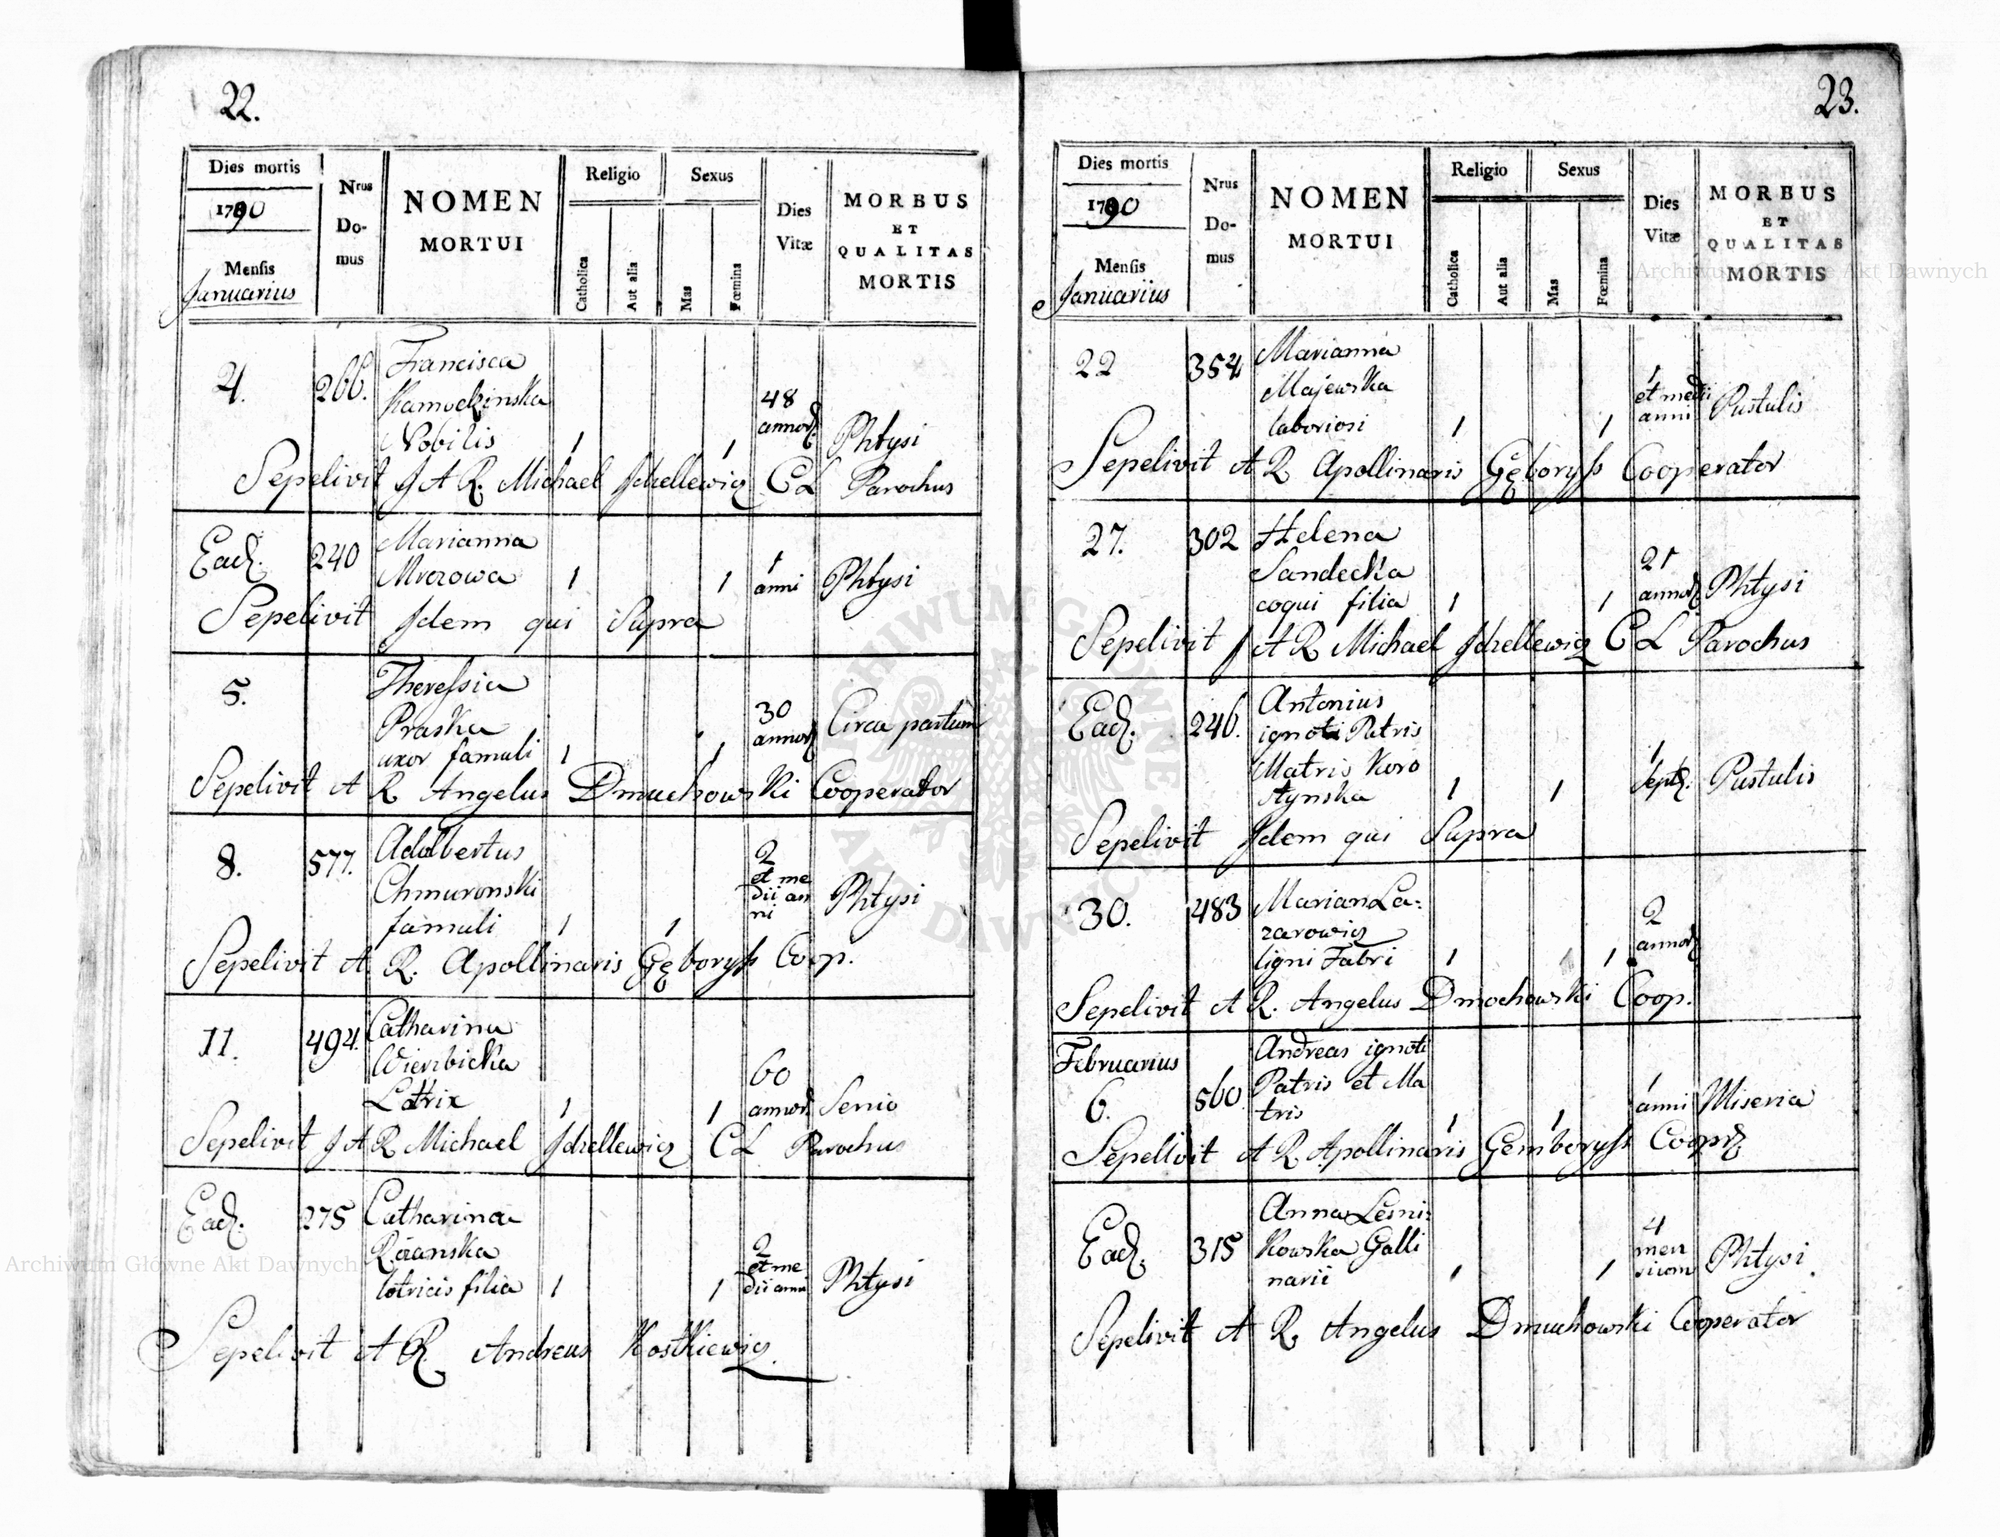 22.
Dies mortis
1790
Mensis
Januarius
Nrus Do-mus
NOMEN
MORTUI
Religio
Catholica
Aut alia
Sexus
Mas
Fœmina
Dies
Vitæ
MORBUS
ET
QUALITAS
MORTIS
4. 266. Francisca
Kamockinska
Nobilis 1 1 48 annor. Phtysi
Sepelivit J A R. Michael Jdzellewicz C L Parochus
Ead. 240 Marianna
Mrozowa 1 1 1 anni Phtysi
Sepelivit Jdem qui Supra
5. Theressia
Praska
uxor famuli 1 1 30 annor. Circa partum
Sepelivit A R Angelus Dmuchowski Cooperator
8. 577. Adalbertus
Chmuronski
famuli 1 1 2 et me dii an ni Phtysi
Sepelivit A. R. Apollinaris Gęboryss Coop.
11. 494. Catharina
Wierzbicka
Lotrix 1 1 60 annor. Senio
Sepelivit J A R Michael Jdzellewicz C L Parochus
Ead. 275 Catharina
Rózanska
lotricis filia 1 1 2 et me dii anni Phtysi
Sepelivit A R. Andreas Kostkiewicz
23.
Dies mortis
1790
Mensis
Januarius
Nrus Do-mus
NOMEN
MORTUI
Religio
Catholica
Aut alia
Sexus
Mas
Fœmina
Dies
Vitæ
MORBUS
ET
QUALITAS
MORTIS
22 354 Marianna
Majewska
laboriosi 1 1 1 et medii anni Pustulis
Sepelivit A R Apollinaris Gęboryss Cooperator
27. 302 Helena
Sandecka
coqui filia 1 1 21 annor. Phtysi
Sepelivit J A R Michael Jdzellewicz C L Parochus
Ead. 246. Antonius
ignoti Patris
Matris Koro
stynska 1 1 1 Septi. Pustulis
Sepelivit Jdem qui Supra
30. 483 Marian La:
zarowicz
ligni Fabri 1 1 2 annor.
Sepelivit A R. Angelus Dmochowski Coop.
Februarius
6. 560. Andreas ignoti
Patris et Ma
tris 1 1 1 anni Miseria
Sepelivit A R. Apollinaris Gemboryss Coopr.
Ead. 315 Anna Leini:
kowska Galli
narii 1 1 4 men sium Phtysi.
Sepelivit A R. Angelus Dmuchowski Cooperator
ARCHIWUM GŁÓWNE
AKT DAWNYCH
Archiwum Główne Akt Dawnych
Archiwum Główne Akt Dawnych